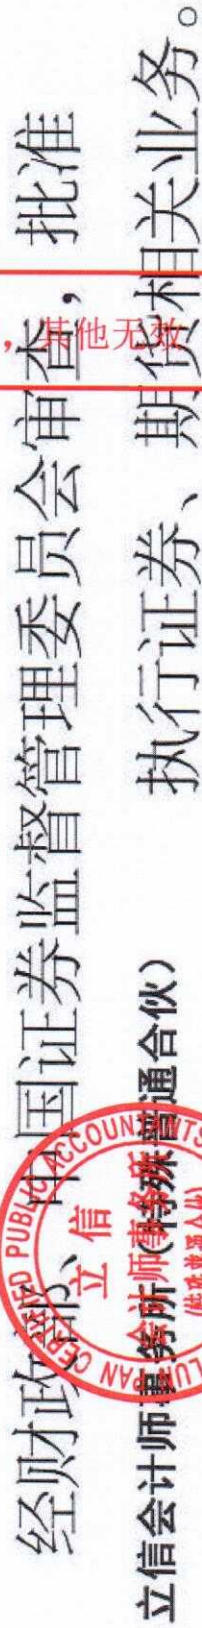 经财政部、中国证券监督管理委员会审查，批准
立信会计师事务所（特殊普通合伙） 执行证券、期货相关业务。
，其他无效
CERTIFIED PUBLIC ACCOUNTANTS
立信
会计师事务所
LUN PAN